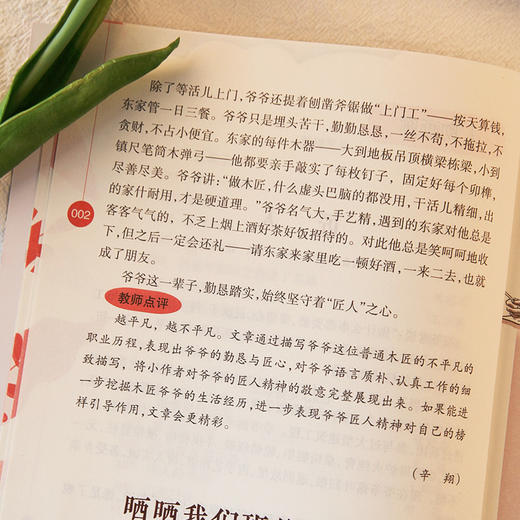 除了等活儿上门，爷爷还提着刨凿斧锯做“上门工”——按天算钱，
东家管一日三餐。爷爷只是埋头苦干，勤勤恳恳，一丝不苟，不拖拉，不
贪财，不占小便宜。东家的每件木器——大到地板吊顶横梁栋梁，小到
镇尺笔筒木弹弓——他都要亲手敲实了每枚钉子，固定好每个卯榫，
尽善尽美。爷爷讲：“做木匠，什么虚头巴脑的都没用，干活儿精细，出
的家什耐用，才是硬道理。”爷爷名气大，手艺精，遇到的东家对他总是
002
客客气气的，不乏上烟上酒好茶好饭招待的。对此他总是笑呵呵地收
下，但之后一定会还礼——请东家来家里吃一顿好酒，一来二去，也就
成了朋友。
爷爷这一辈子，勤恳踏实，始终坚守着“匠人”之心。
教师点评
越平凡，越不平凡。文章通过描写爷爷这位普通木匠的不平凡的
职业历程，表现出爷爷的勤恳与匠心，对爷爷语言质朴、认真工作的细
致描写，将小作者对爷爷的匠人精神的敬意完整展现出来。如果能进
一步挖掘木匠爷爷的生活经历，进一步表现爷爷匠人精神对自己的榜
样引导作用，文章会更精彩。
（辛 翔）
晒晒我们班